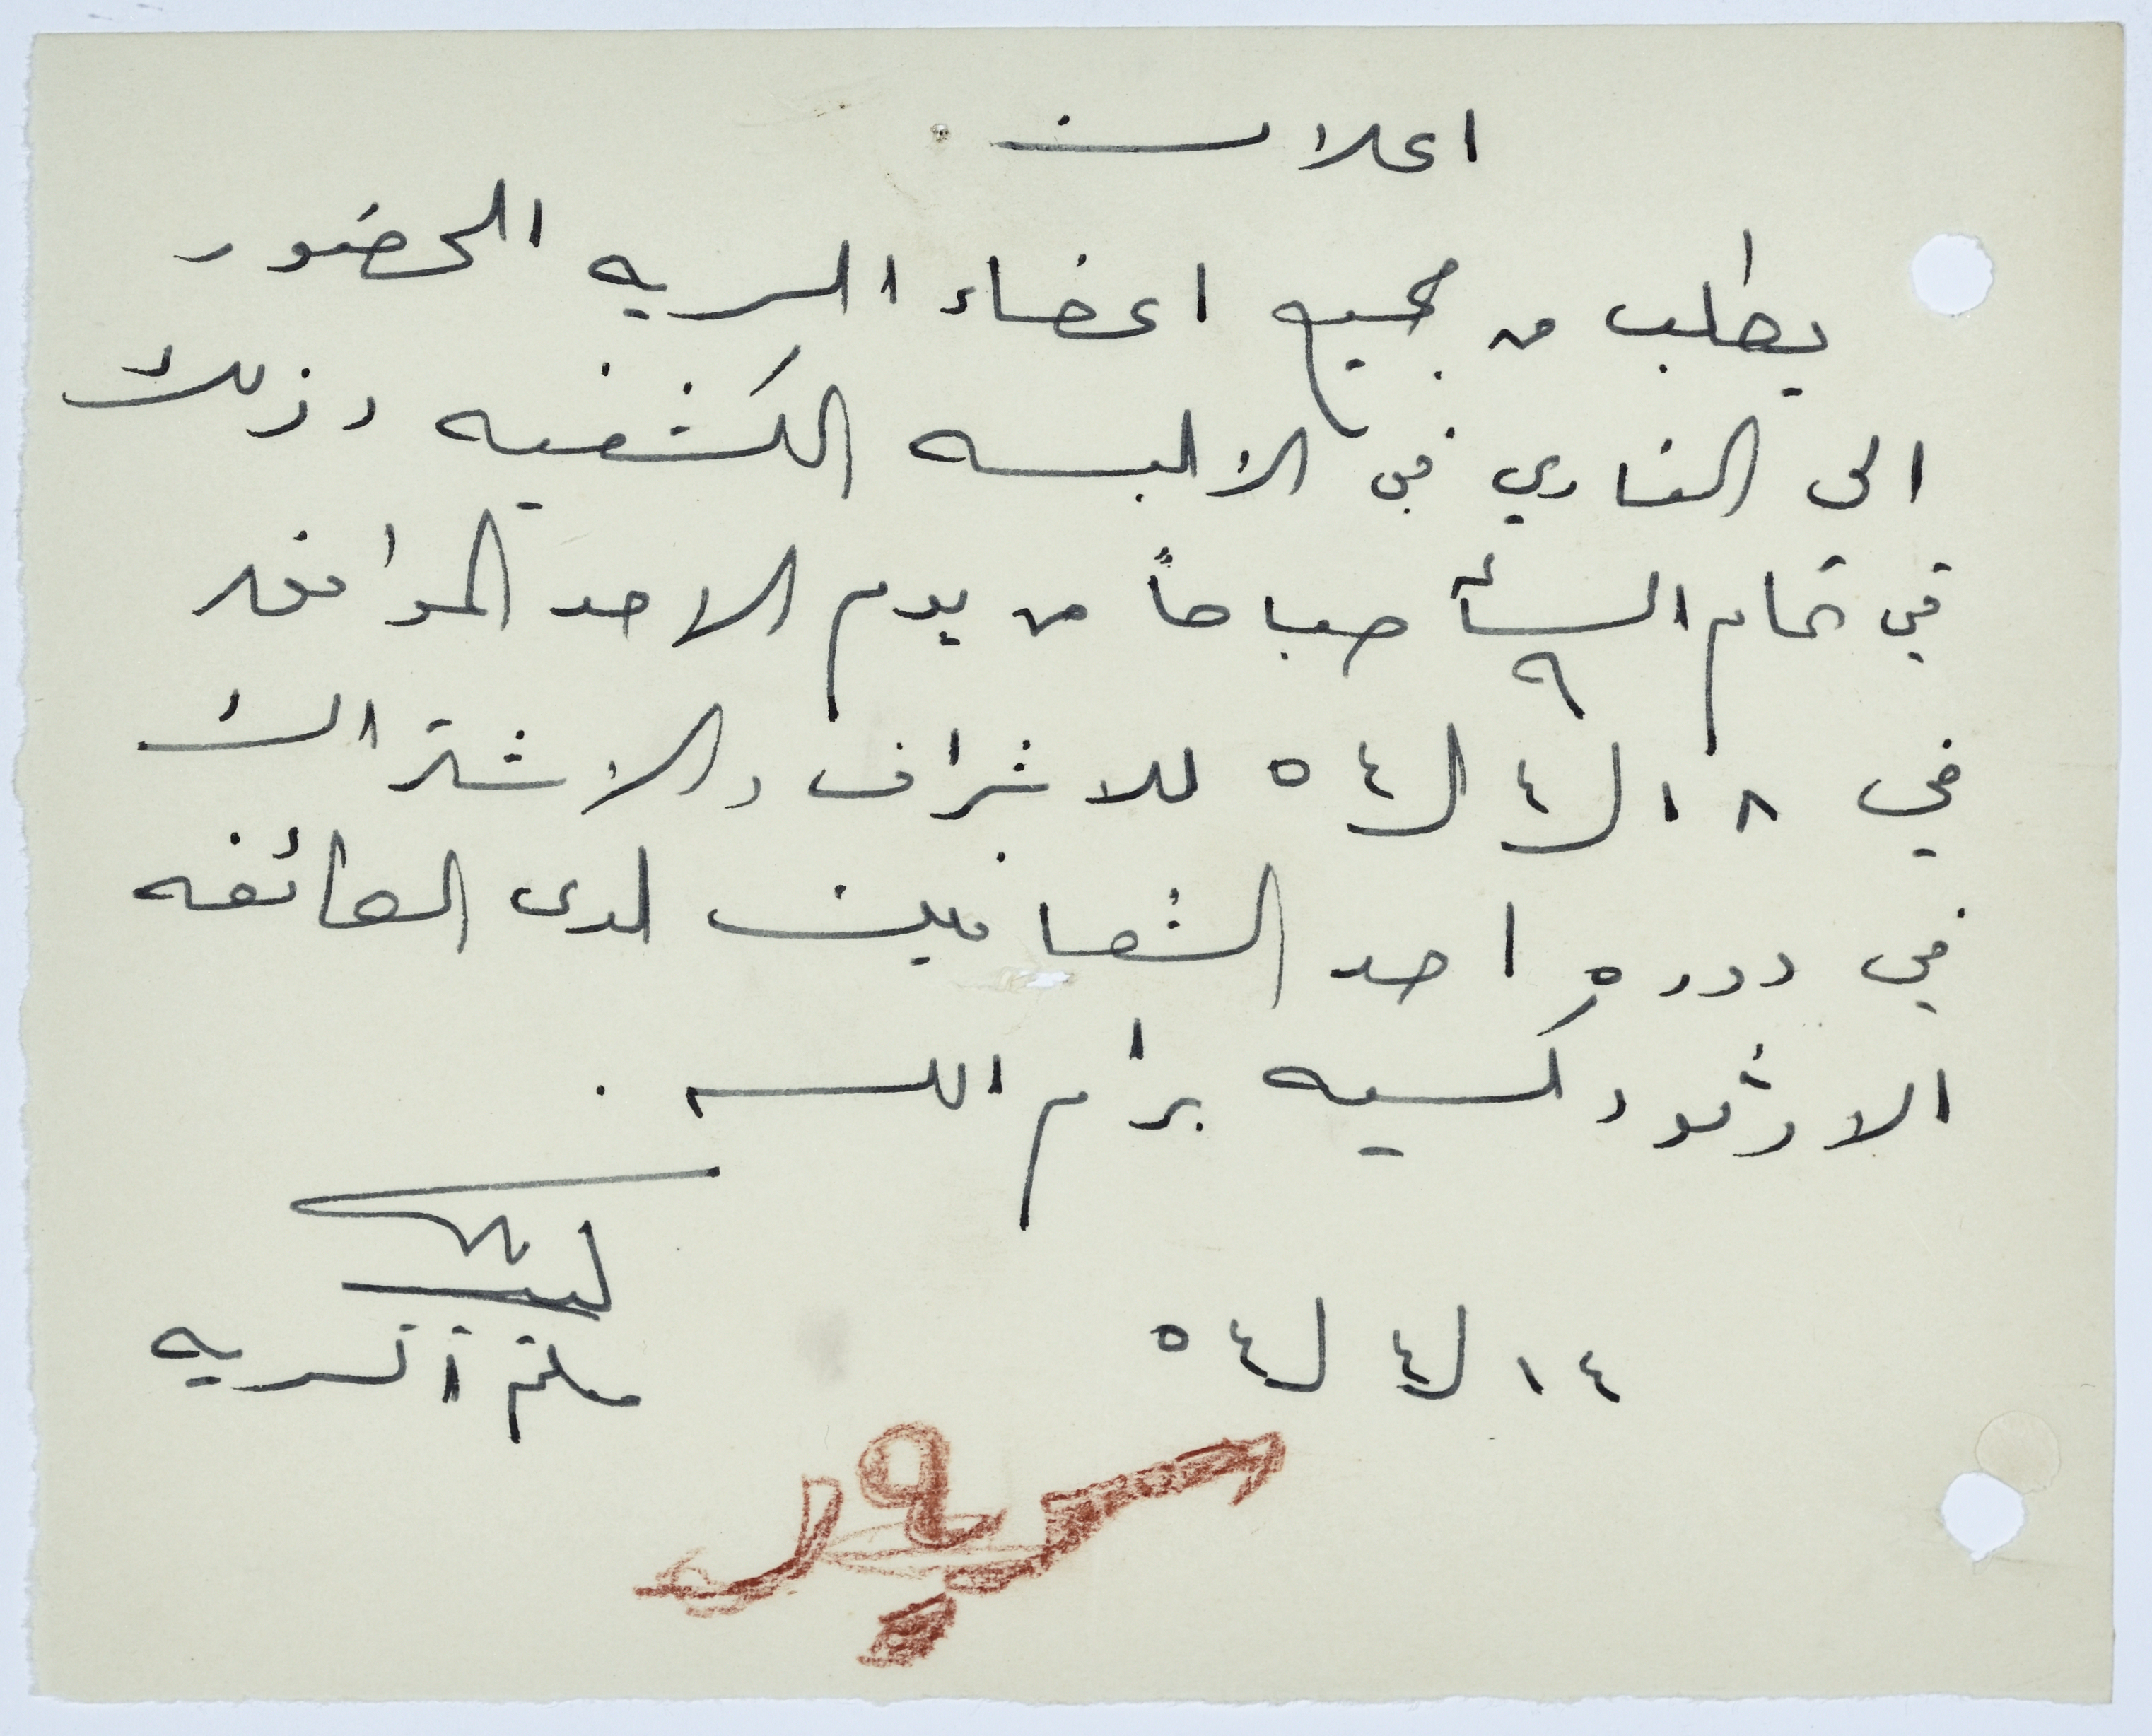 اعلان
يطلب من جميع اعضاء السريه الحضور
الى النادي في الالبسه الكشفيه وذلك
في تمام الساعة ٩ صباحاً من يوم الاحد الموافق
في ١٨/٤/٥٤ للاشراف والاشتراك
في دوره احد الشعانين لدى الطائفه
الارثوذكسيه برام الله .
١٤/٤/٥٤
معلم السريه